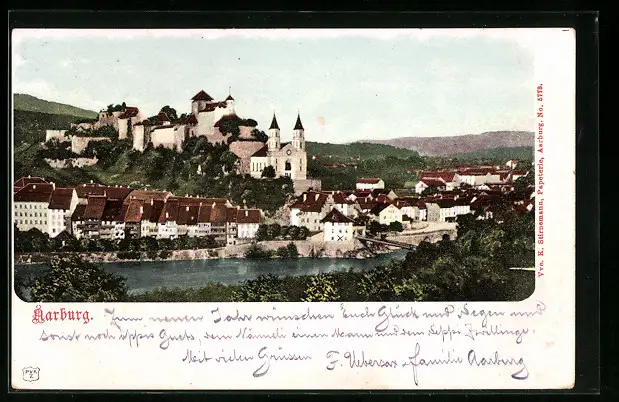 Vve. K. Stirnemann, Papeterie, Aarburg. No. 5773.
Aarburg.
Zum neuen Jahr wünschen Euch Glück und Segen und
sonst noch öppis Guets, dem Männeli einen Mann und dem Seppi Zwillinge.
Mit vielen Grüssen F. Uebersax & familie Aarburg